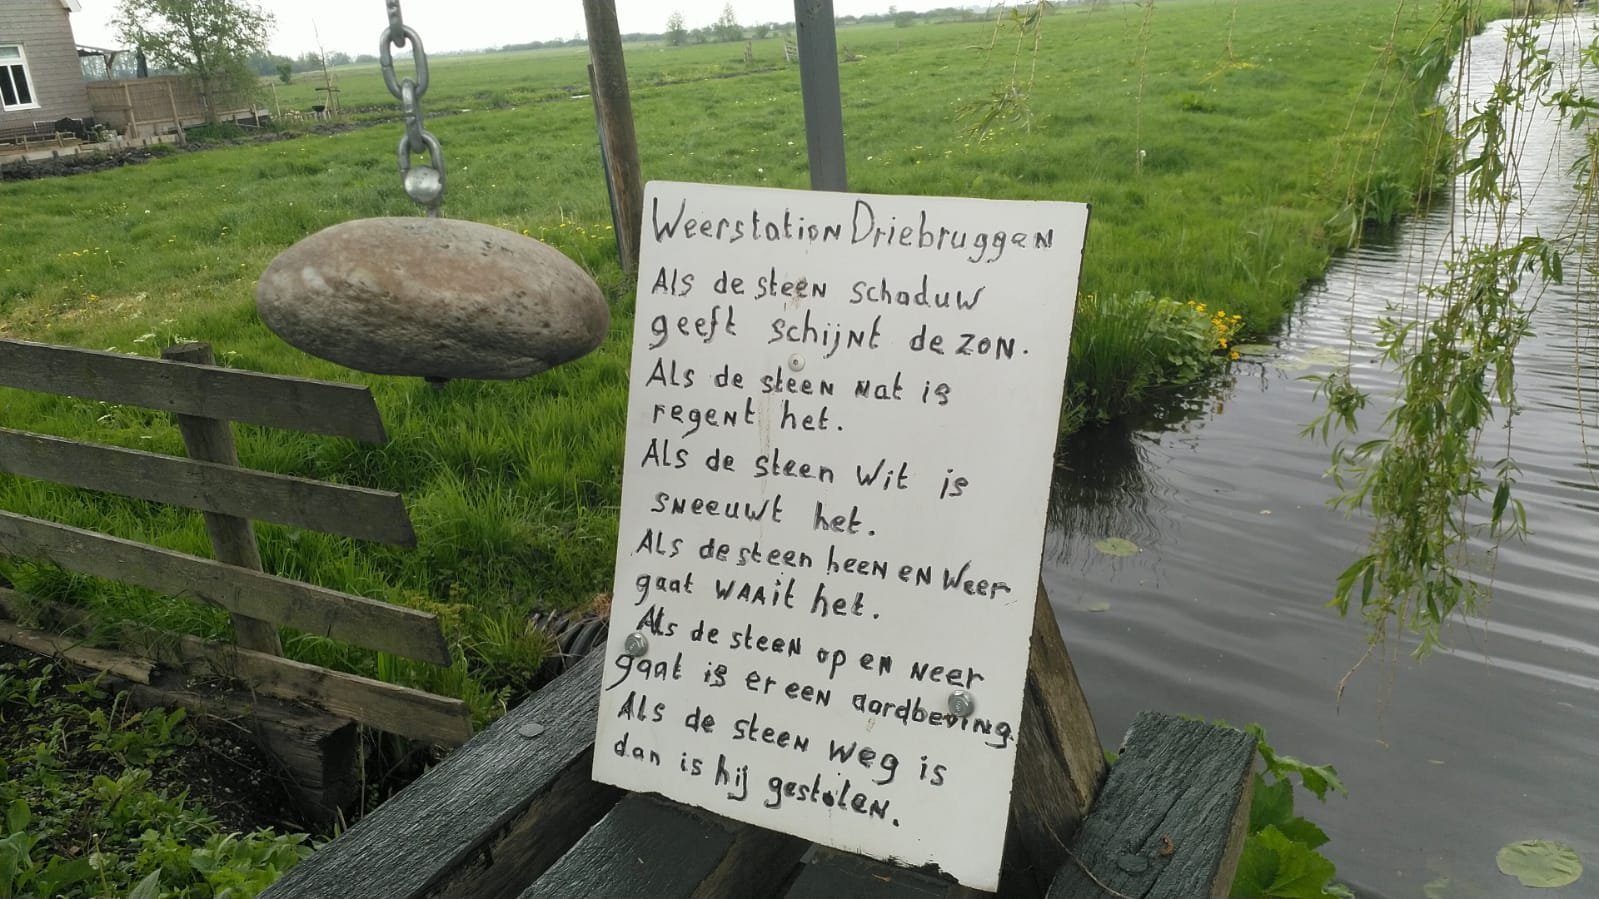 Weerstation Driebruggen
Als de steen schaduw
geeft schijnt de zon.
Als de steen nat is
regent het.
Als de steen wit is
sneeuwt het.
Als de steen heen en weer
gaat waait het.
Als de steen op en neer
gaat is er een aardbeving.
Als de steen weg is
dan is hij gestolen.